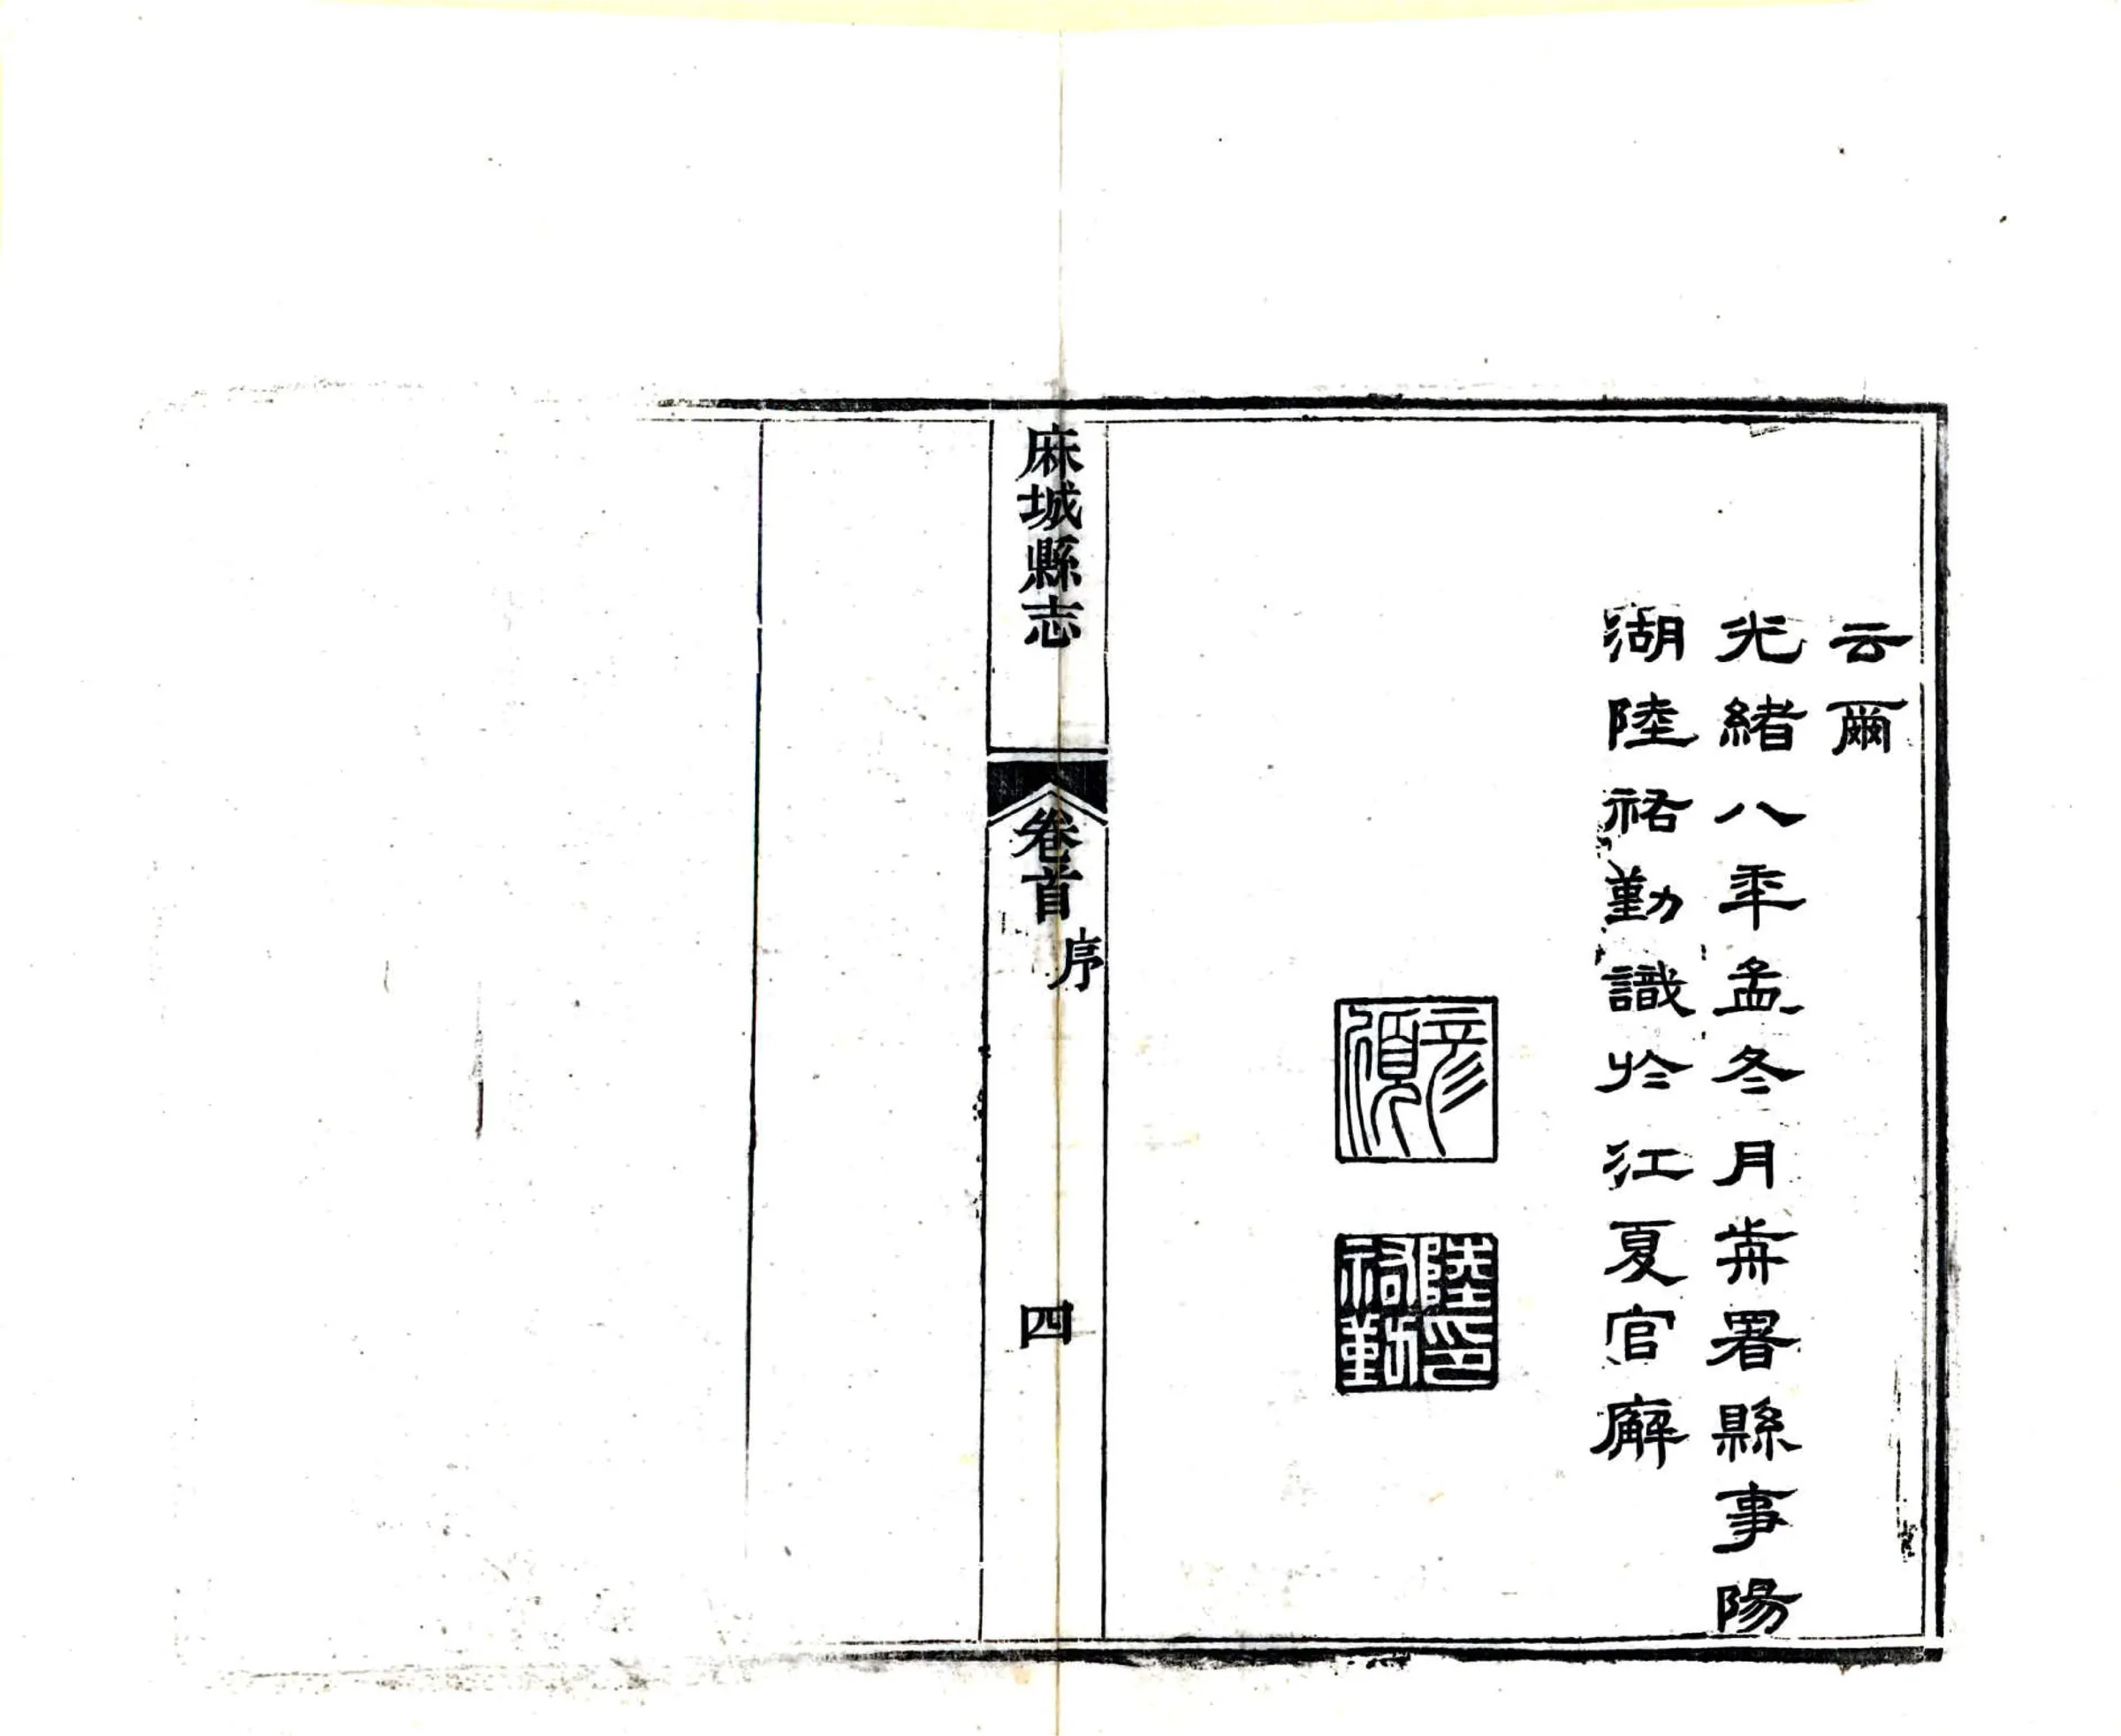 云爾
光緒八年孟冬月前署縣事陽
湖陸祐勤識於江夏官廨
彥頎
陸印祐勤
麻城縣志
卷首
序
四